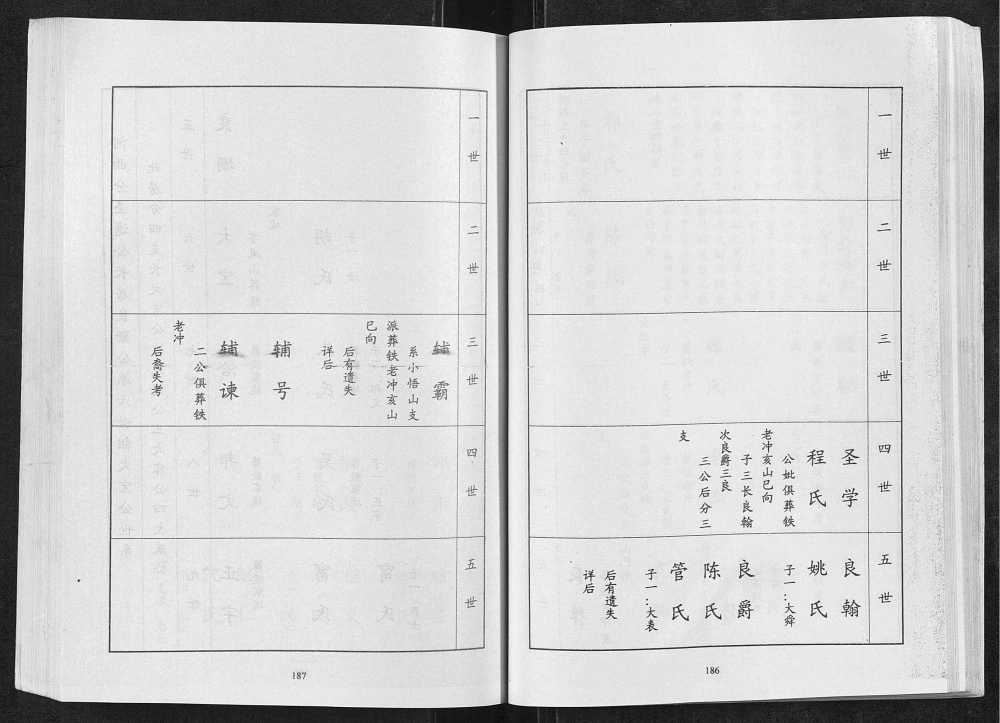 一世
二世
三世
四世
圣学
程氏
公妣俱葬铁
老冲亥山巳向
子三长良翰
次良爵三良
三公后分三
支
五世
良翰
姚氏
子一:大舜
良爵
陈氏
管氏
子一:大表
后有遗失
详后
186
一世
二世
三世
辅霸
系小悟山支
派葬铁老冲亥山
巳向
后有遗失
详后
辅号
辅谏
二公俱葬铁
老冲
后裔失考
四世
五世
187